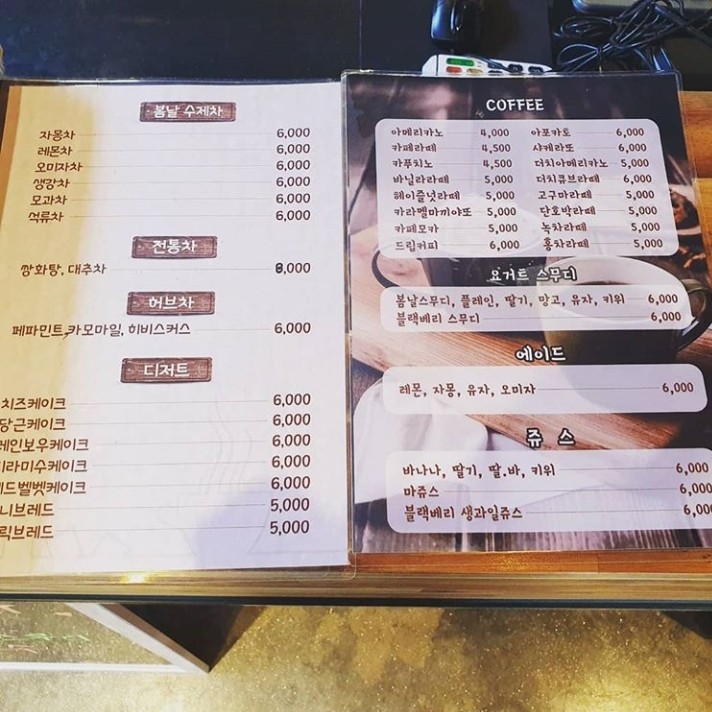 봄날 수제차
자몽차 6,000
레몬차 6,000
오미자차 6,000
생강차 6,000
모과차 6,000
석류차 6,000
전통차
쌍화탕, 대추차 6,000
허브차
페파민트, 카모마일, 히비스커스 6,000
디저트
치즈케이크 6,000
당근케이크 6,000
레인보우케이크 6,000
티라미수케이크 6,000
레드벨벳케이크 6,000
니브레드 5,000
릭브레드 5,000
COFFEE
아메리카노 4,000 아포카토 6,000
카페라떼 4,500 샤케라또 6,000
카푸치노 4,500 더치아메리카노 5,000
바닐라라떼 5,000 더치큐브라떼 6,000
헤이즐넛라떼 5,000 고구마라떼 5,000
카라멜마끼야또 5,000 단호박라떼 5,000
카페모카 5,000 녹차라떼 5,000
드립커피 6,000 홍차라떼 5,000
요거트 스무디
봄날스무디, 플레인, 딸기, 망고, 유자, 키위 6,000
블랙베리 스무디 6,000
에이드
레몬, 자몽, 유자, 오미자 6,000
쥬 스
바나나, 딸기, 딸.바, 키위 6,000
마쥬스 6,000
블랙베리 생과일쥬스 6,000